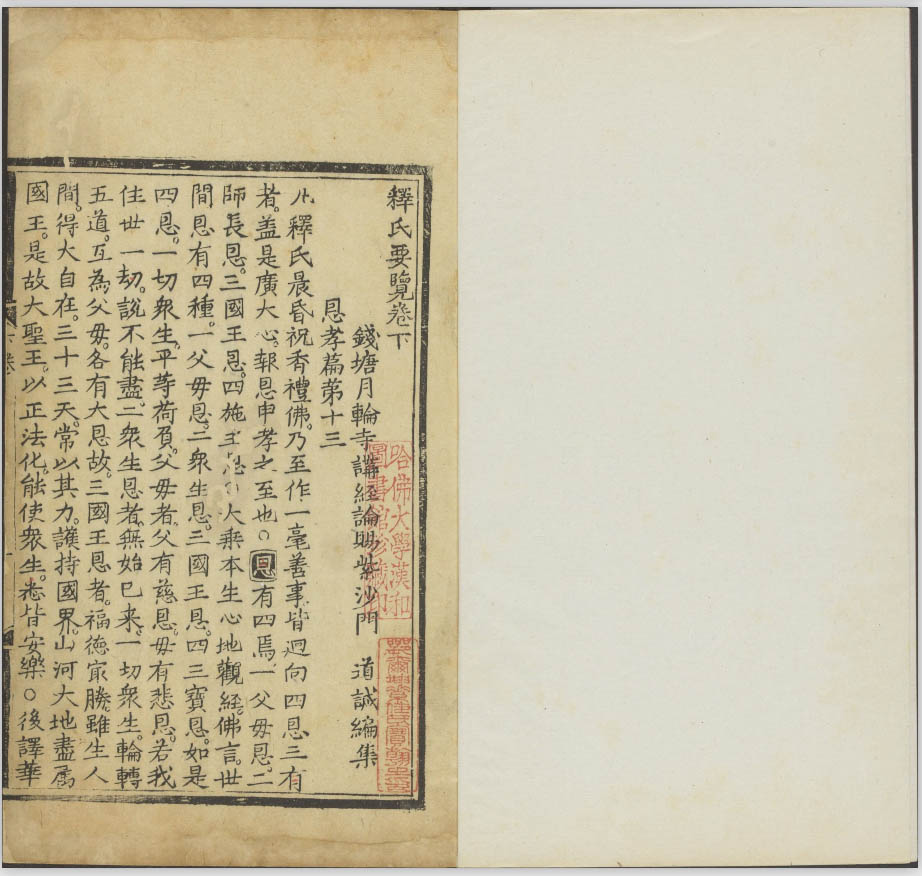 釋氏要覽卷下
錢塘月輪寺講経論賜紫沙門　道誠編集
恩孝篇第十三
凡釋氏晨昏祝香禮佛。乃至作一毫善事皆迴向四恩三有
者。盖是廣大心。報恩申孝之至也○恩有四焉。一父毋恩。二
師長恩。三國王恩。四施主恩○大乘本生心地觀経。佛言。世
間恩有四種。一父毋恩。二衆生恩。三國王恩。四三寳恩。如是
四恩。一切衆生。平䓁荷負。父毋者。父有慈恩。毋有悲恩。若我
住世一劫。說不能盡。二衆生恩者。無始已来。一切衆生。輪轉
五道。互為父毋。各有大恩故。三國王恩者。福德㝡勝雖生人
間。得大自在。三十三天。常以其力。護持國界。山河大地盡属
國王。是故大聖王。以正法化。能使衆生。悉皆安樂○後譯華
哈佛大學漢和
圖書館珍藏印